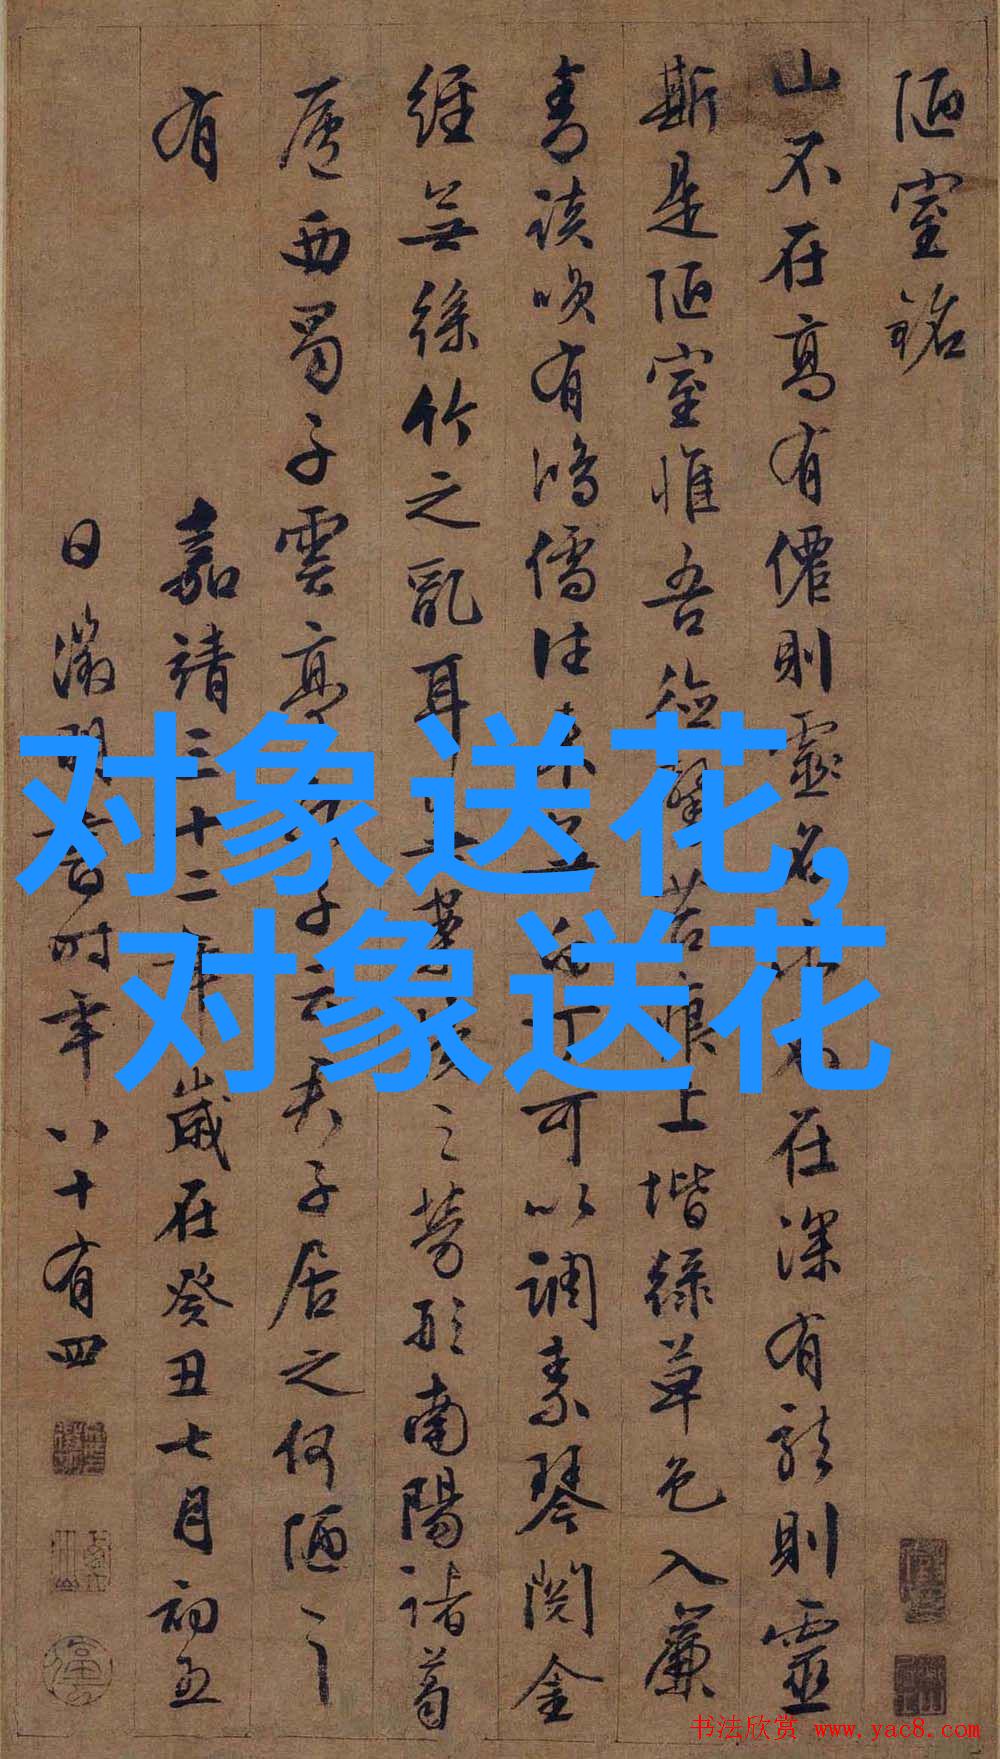 陋室銘
山不在高有僊則靈名水不在深有龍則靈
斯是陋室惟吾德馨苔痕上堦綠草色入簾
青談咲有鴻儒往來無白丁可以調素琴閱金
經無絲竹之亂耳無案牘之勞形南陽諸葛
廬西蜀子雲亭孔子云君子居之何陋之
有
嘉靖三十二年歲在癸丑七月初五
日徵明書時年八十有四
对象送花,
对象送花
书法欣赏 www.yac8.com